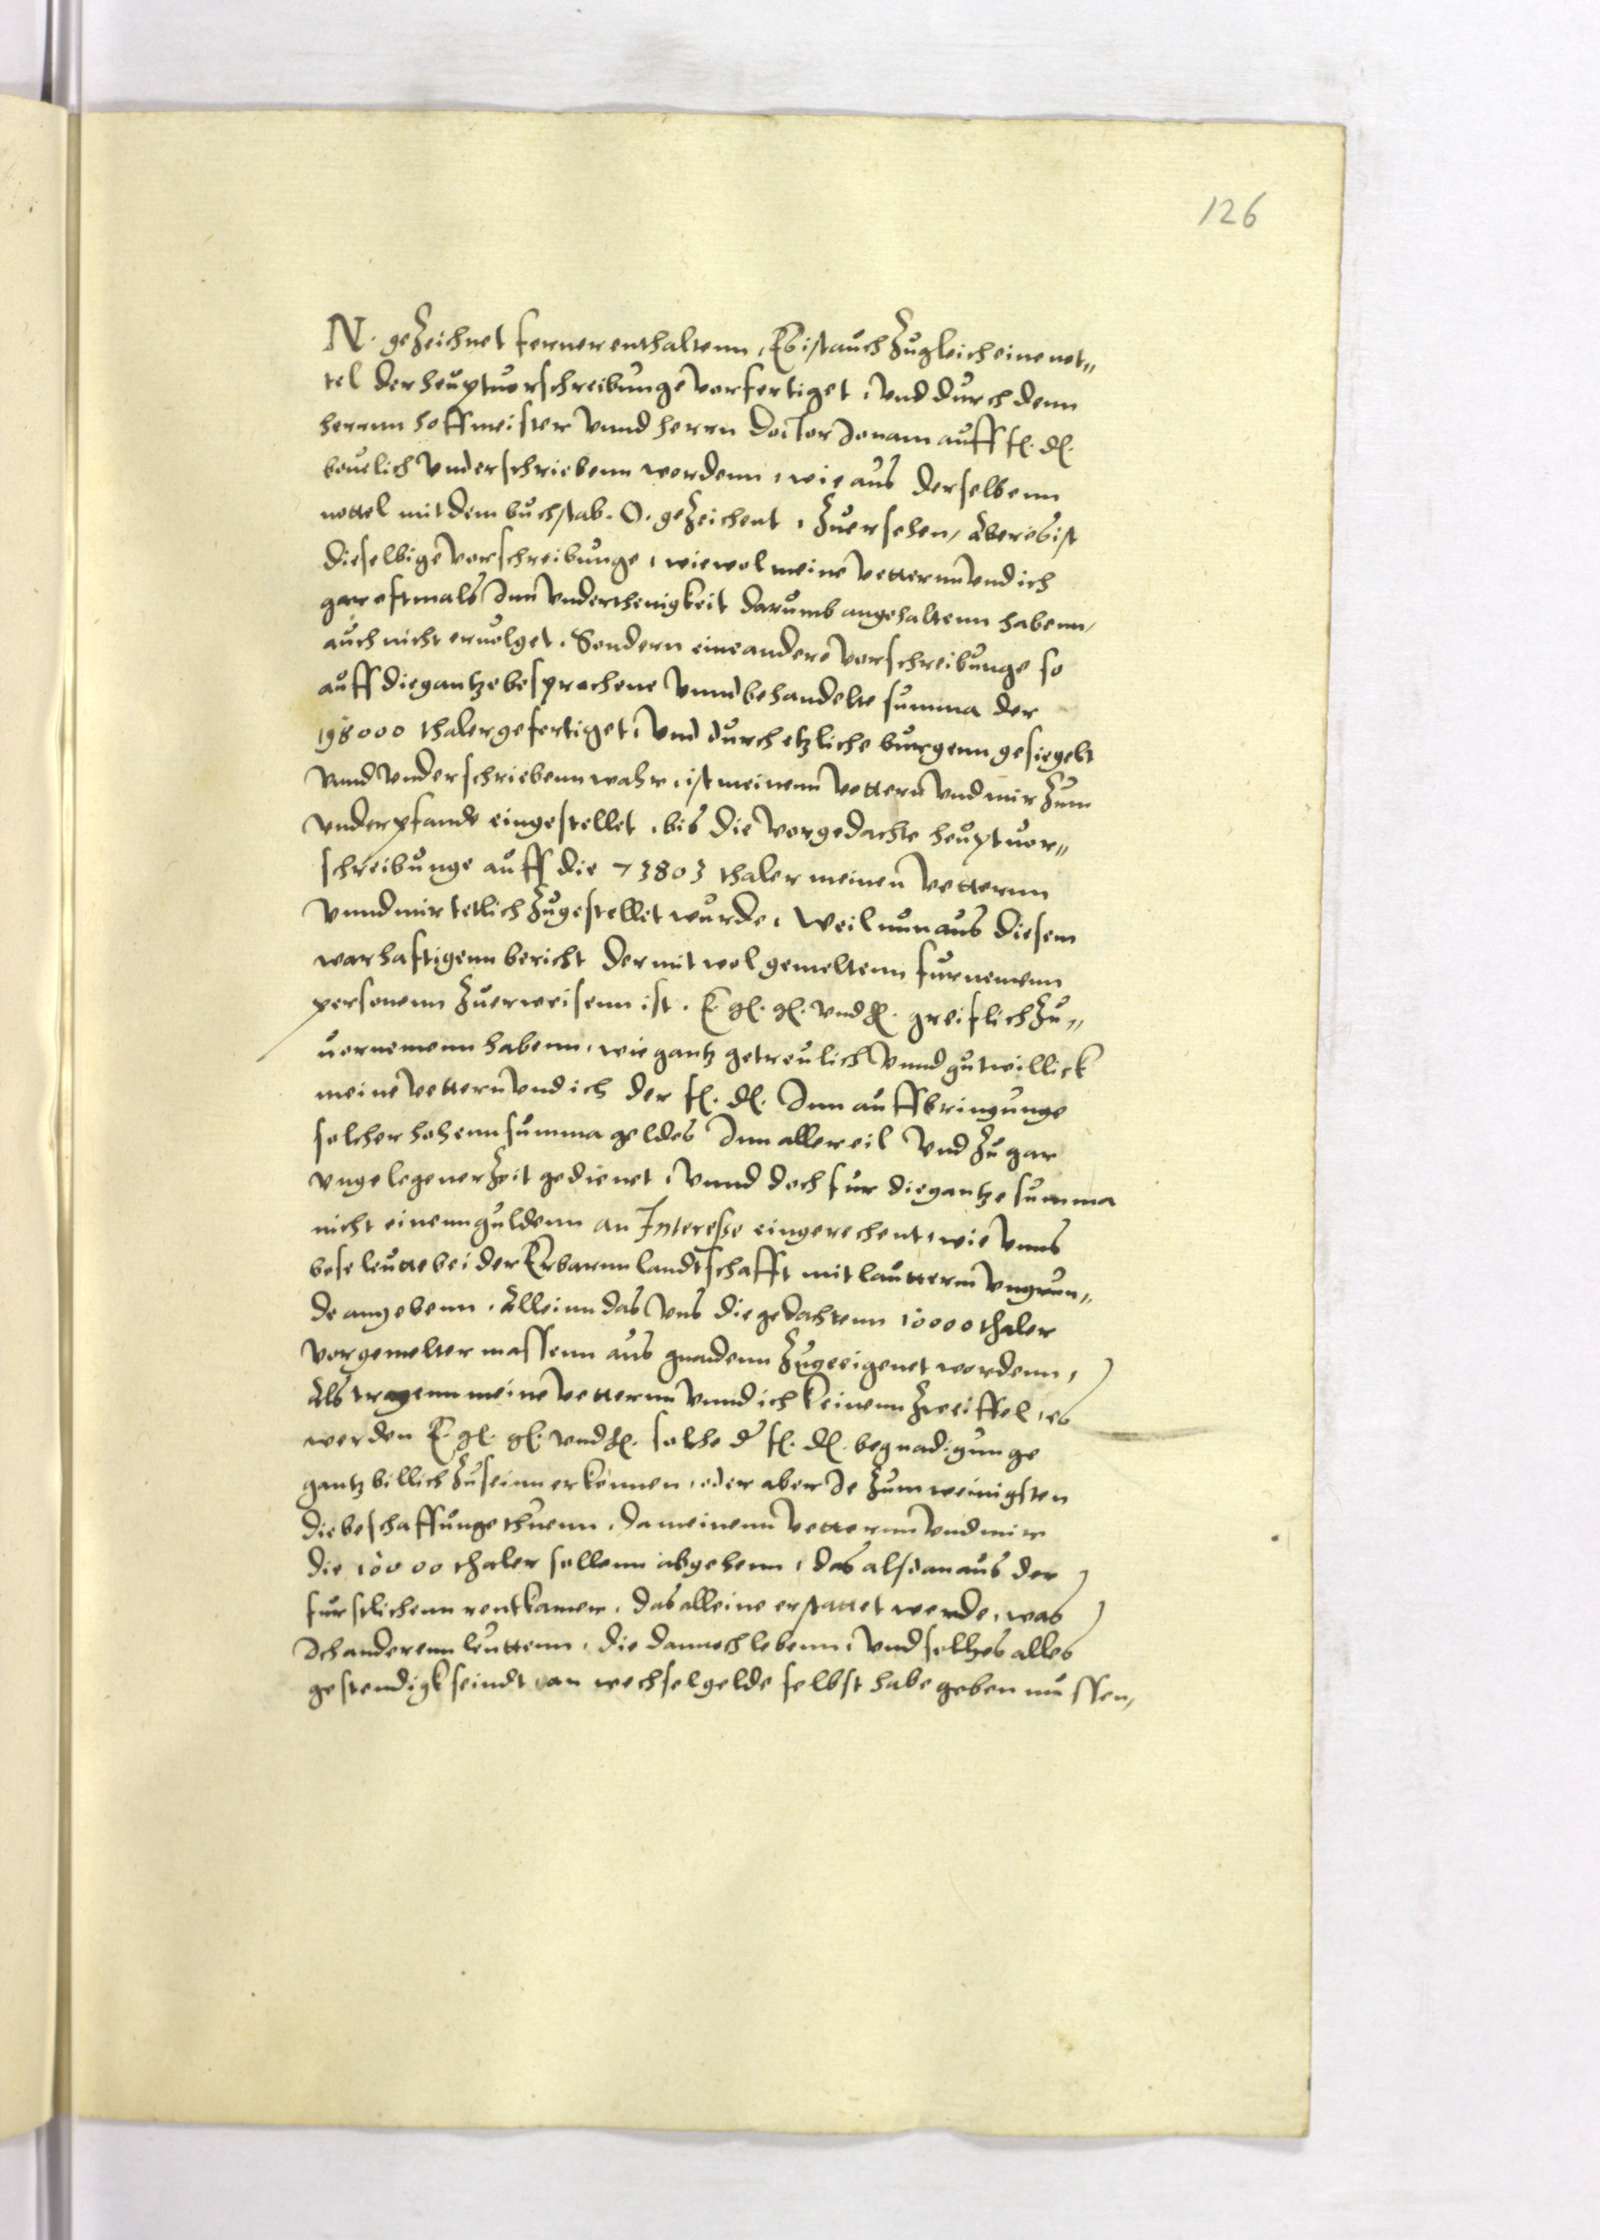 126
N. gezeichnet ferner enthaltenn, Es ist auch zugleich eine not„
tel der heuptuorschreibunge vorfertiget, vnd durch denn
herrnn hoffmeister vnnd herrn Doctor Jonam auff f. d.
beuelich vnderschriebenn wordenn, wie aus derselbenn
nottel mit dem buchstab. O. gezeichent, zuersehen, Aber es ist
dieselbige vorschreibunge, wiewol meine vetternn vnd ich
gar oftmals Inn vnderthenigkeit darumb angehaltenn habenn,
auch nicht eruolget, Sondern eine andere vorschreibunge so
auff die gantze besprochene vnnd behandelte summa der
198000 thaler gefertiget, vnd durch etzliche burgenn gesiegelt
vnnd vnderschriebenn wahr, ist meinenn vettern vnd mir zum
vnderpfande eingestellet, bis die vorgedachte heuptuor„
schreibunge auff die 73803 thaler meinen vetternn
vnnd mir entlich zugestellet wurde, Weil nun aus diesem
warhaftigenn bericht der mit wolgemeltenn furnemenn
personenn zuerweisenn ist, E. gl. gl. vnd gl. greiflich zu„
uornemenn habenn, wie gantz getreulich vnnd gutwillick
meine vettern vnd ich der f. d. Inn auffbringunge
solcher hohenn summa geldes Inn aller eil vnd zu gar
vngelegener zeit gedienet, vnnd doch fur die gantze summa
nicht einenn guldenn an Interesse eingerechent, wie vnns
bose leutte bei der Erbarnn landtschafft mit lautterm vngrun„
de angebenn, Alleinn das vns die gedachtenn 10000 thaler
vorgemelter massenn aus gnadenn zugeeigenet wordenn,
Als tragenn meine vetternn vnnd ich keinenn zweiffel, es
werden E. gl. gl. vnd gl. solche der f. d. begnadigunge
gantz billich zu seinn erkennen, oder aber Je zum weinigsten
die beschaffunge thuenn, da meinenn vetternn vnd mir
die 10000 thaler sollenn abgehenn, das alsdan aus der
furstlichenn rentkamer, das alleine erstattet werde, was
Ich anderenn leuttenn, die dannoch lebenn, vnd solches alles
gestendigk seindt, an wechselgelde selbst habe geben mussen,